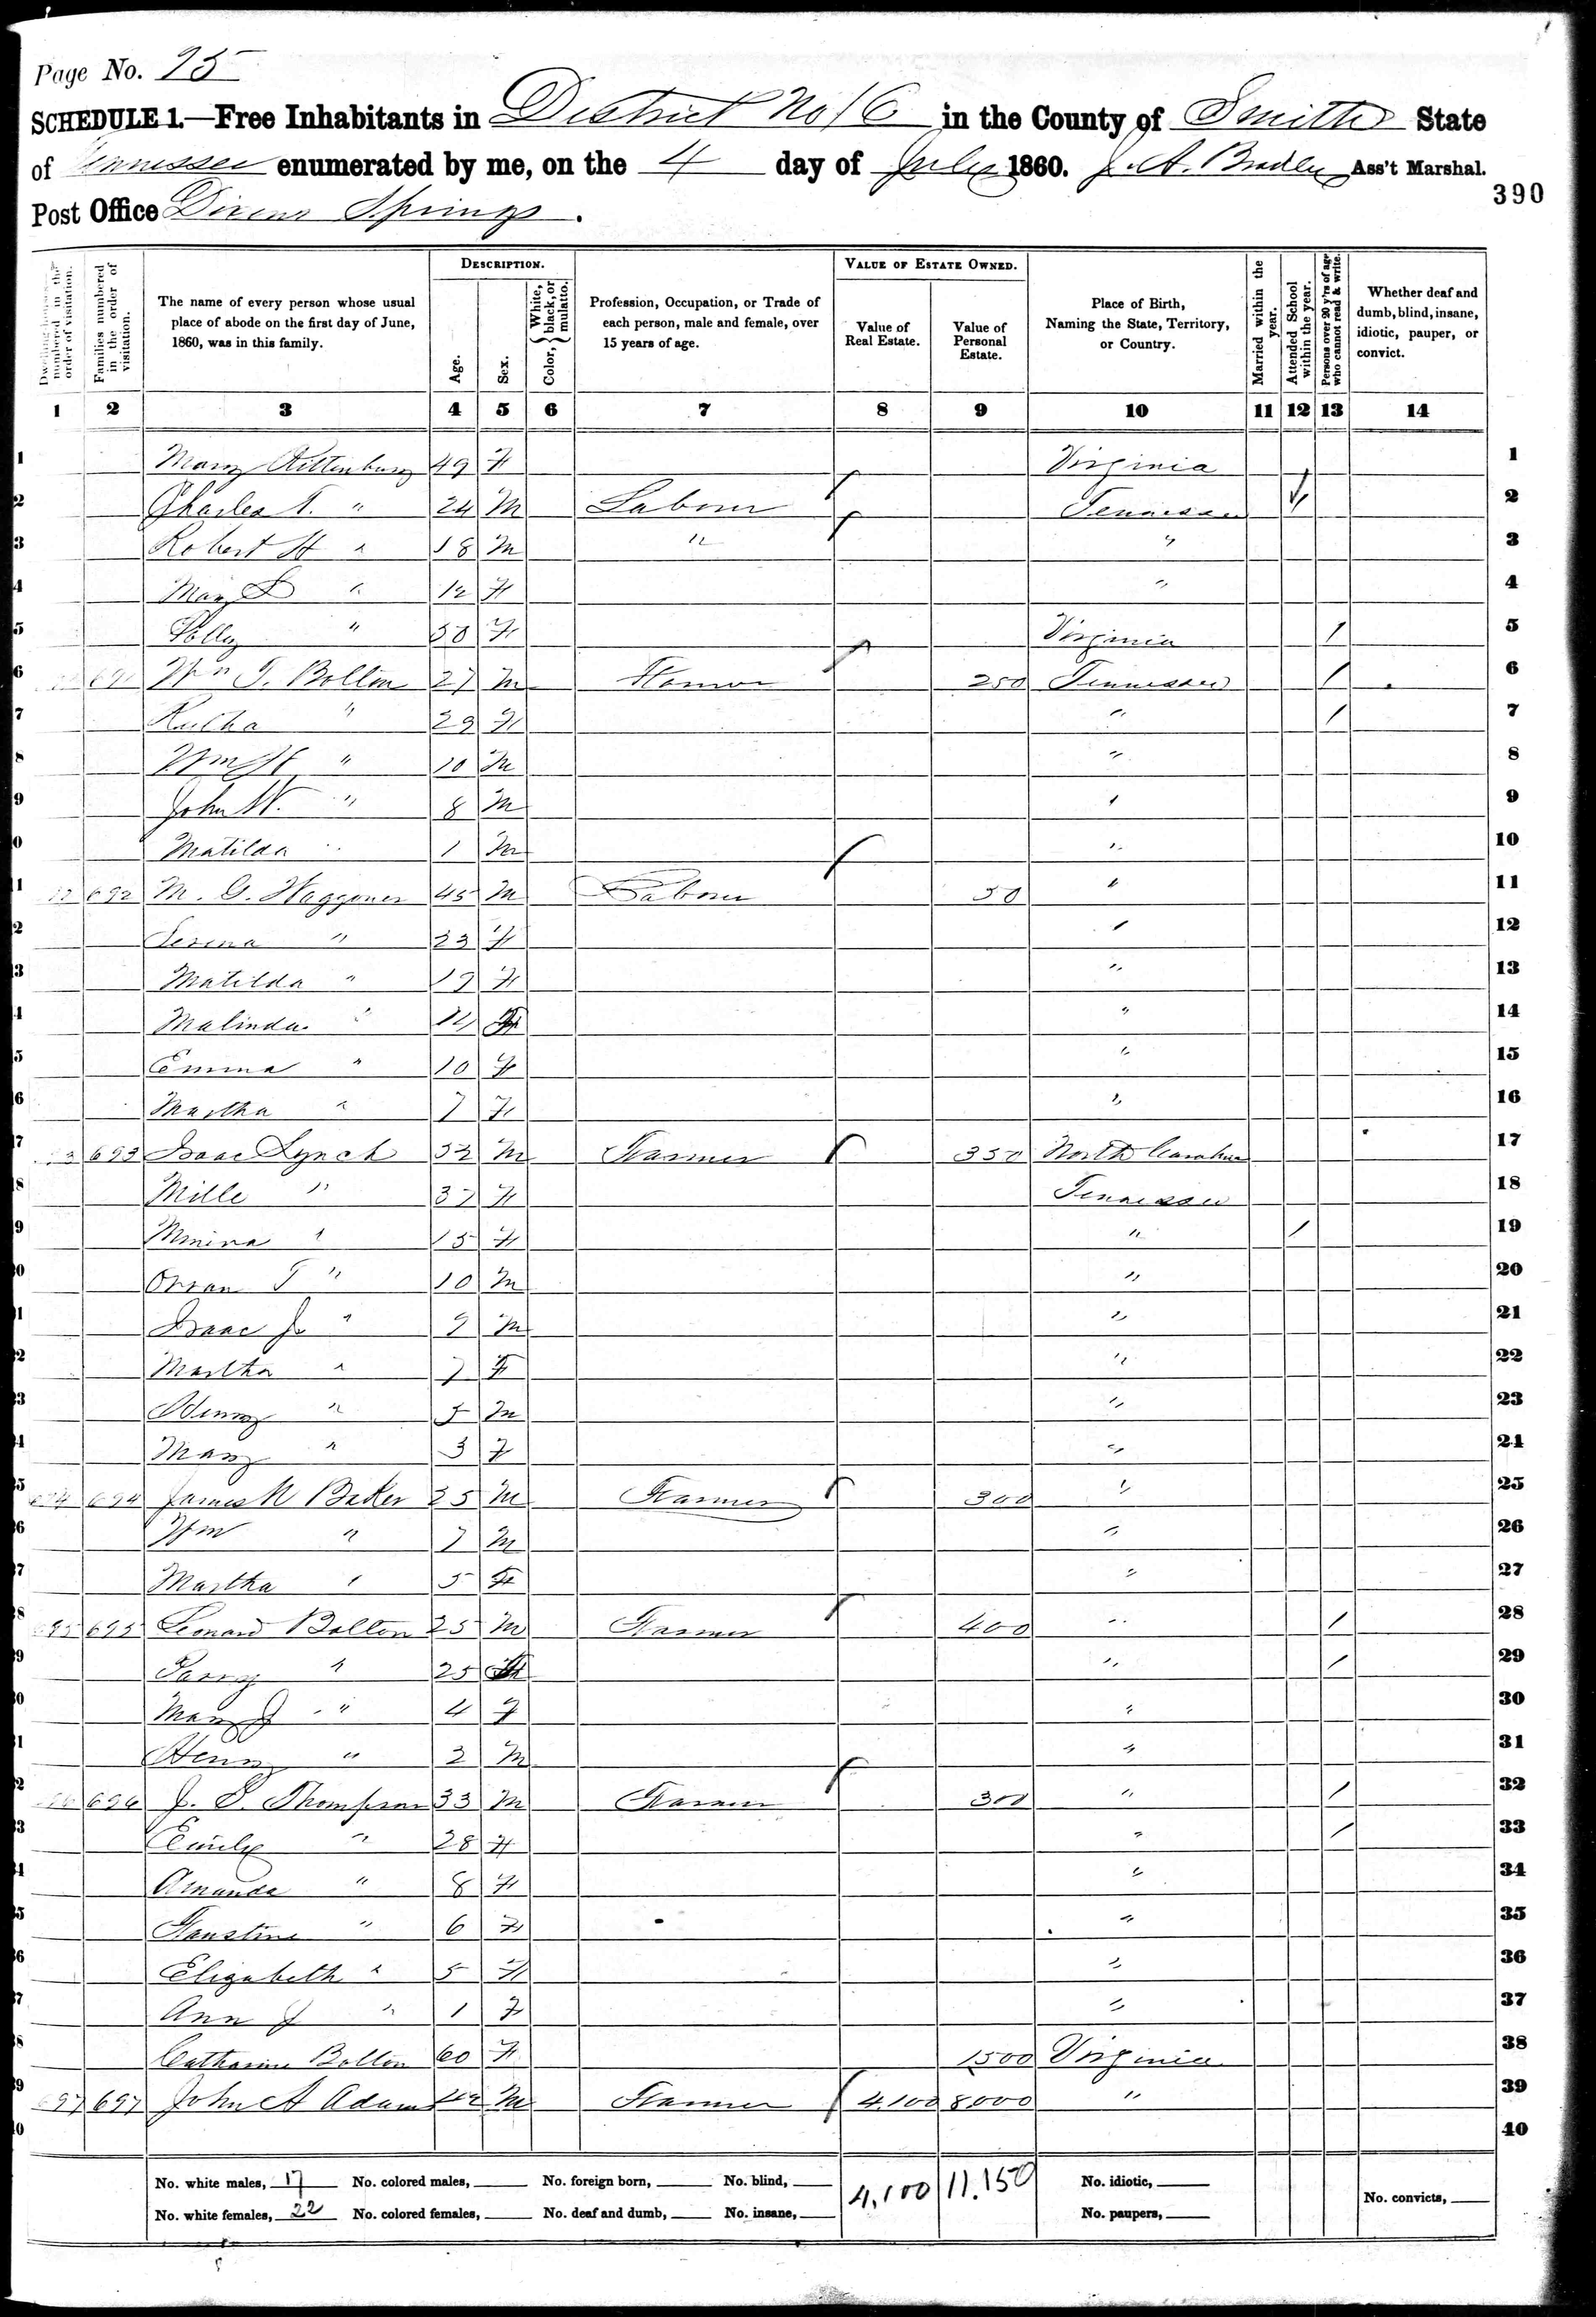 Page No. 95
SCHEDULE 1.—Free Inhabitants in District No 16 in the County of Smith State
of Tennessee enumerated by me, on the 4 day of July 1860. J. A. Bradley Ass't Marshal.
390
Post Office Dixons Springs.
Dwelling-houses numbered in the order of visitation.
Families numbered in the order of visitation.
The name of every person whose usual place of abode on the first day of June, 1860, was in this family.
DESCRIPTION.
Age.
Sex.
Color, { White, black, or mulatto.
Profession, Occupation, or Trade of each person, male and female, over 15 years of age.
VALUE OF ESTATE OWNED.
Value of Real Estate.
Value of Personal Estate.
Place of Birth, Naming the State, Territory, or Country.
Married within the year.
Attended School within the year.
Persons over 20 y'rs of age who cannot read & write.
Whether deaf and dumb, blind, insane, idiotic, pauper, or convict.
1 2 3 4 5 6 7 8 9 10 11 12 13 14
1 Mary Rittenbury 49 F Virginia 1
2 Charles T. " 24 M Labour Tennessee / 2
3 Robert H " 18 M " " 3
4 Mary " 12 F " 4
5 Polly " 50 F Virginia / 5
6 691 Wm T. Bolton 27 M Farmer 250 Tennessee / 6
7 Rutha " 29 F " / 7
8 Wm H " 10 M " 8
9 John W. " 8 M " 9
10 Matilda " 1 M " 10
11 692 M. G. Waggoner 45 M Labour 50 " 11
12 " 23 F " 12
13 Matilda " 19 F " 13
14 Malinda " 14 F " 14
15 Emma " 10 F " 15
16 Martha " 7 F " 16
17 693 Isaac Lynch 52 M Farmer 350 North Carolina 17
18 Mille " 37 F Tennessee 18
19 " 15 F " / 19
20 T " 10 M " 20
21 Isaac J " 9 M " 21
22 Martha " 7 F " 22
23 Henry " 5 M " 23
24 Mary " 3 F " 24
25 694 694 James N Baker 25 M Farmer 300 " 25
26 Wm " 7 M " 26
27 Martha " 5 F " 27
28 695 695 Leonard Bolton 25 M Farmer 400 " / 28
29 " 25 F " / 29
30 Mary J " 4 F " 30
31 Henry " 2 M " 31
32 696 J. S. Thompson 33 M Farmer 300 " / 32
33 Emily " 28 F " / 33
34 Amanda " 8 F " 34
35 Faustine " 6 F " 35
36 Elizabeth " 5 F " 36
37 Ann J " 1 F " 37
38 Catharine Bolton 60 F 1500 Virginia 38
39 697 697 John A Adams 42 M Farmer 4,100 8,000 " 39
40 40
No. white males, 17 No. colored males, No. foreign born, No. blind, 4,100 11.150 No. idiotic,
No. white females, 22 No. colored females, No. deaf and dumb, No. insane, No. paupers, No. convicts,